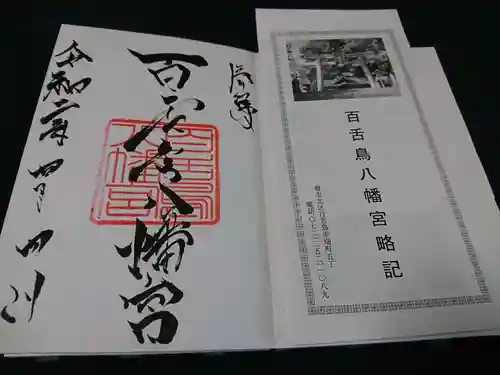 奉拝
百舌鳥八幡宮
百舌鳥八幡宮
令和二年四月四日
百舌鳥八幡宮略記
堺市北区百舌鳥赤畑町五丁
電話〇七二・二五二・一〇八九